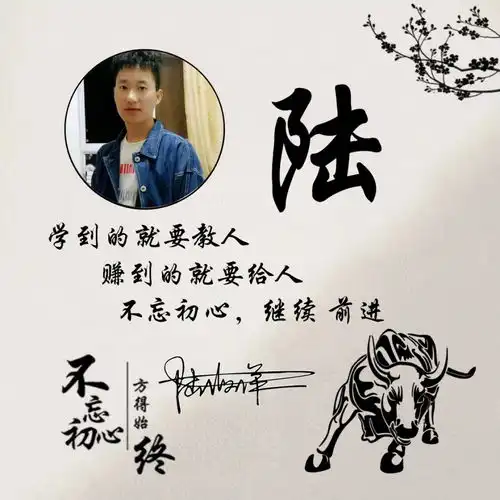 陆
学到的就要教人
赚到的就要给人
不忘初心，继续前进
不忘初心
方得始终